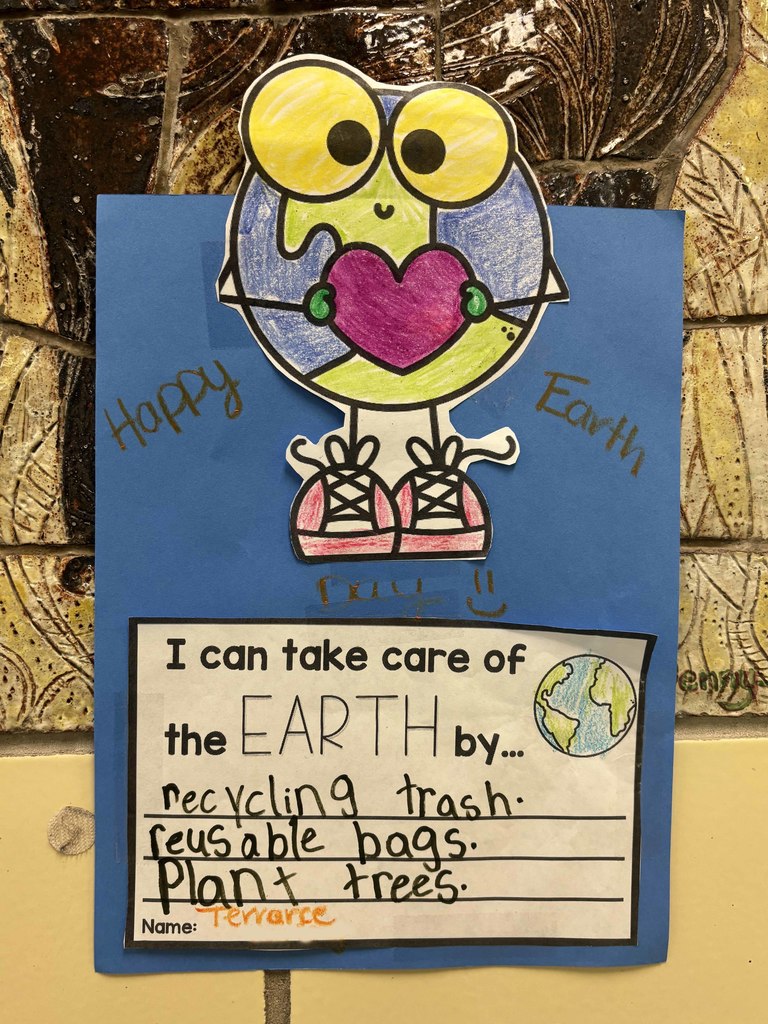 Happy Earth
Day
I can take care of
the EARTH by...
recycling trash.
reusable bags.
Plant trees.
Name: Terrarce